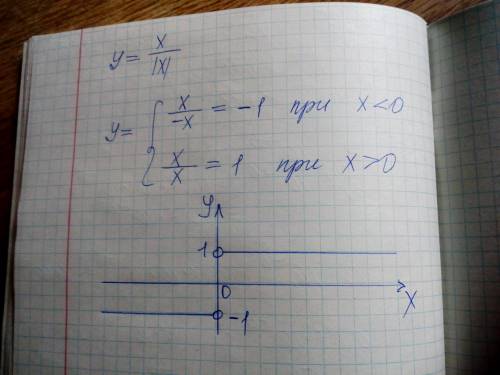 y = x/|x|
y = { x/-x = -1 при x<0
x/x = 1 при x>0
y
1
0
x
-1